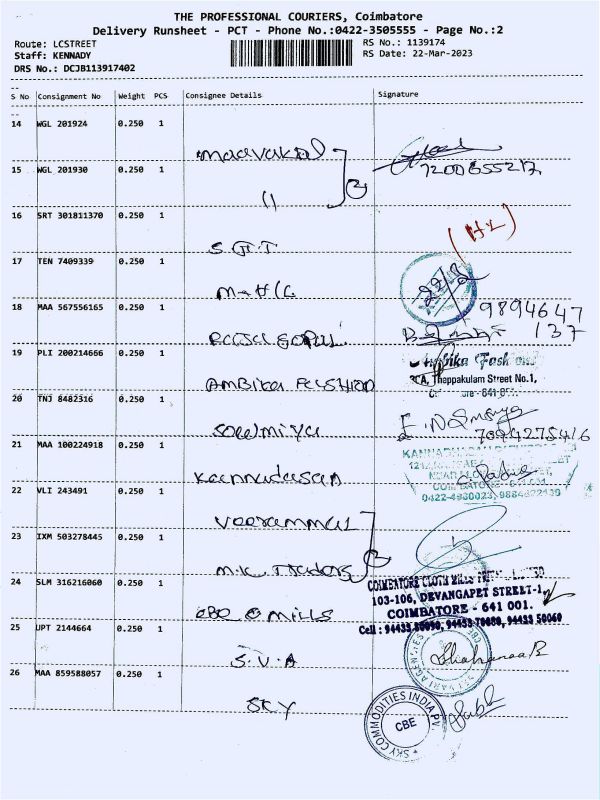 THE PROFESSIONAL COURIERS, Coimbatore
Delivery Runsheet - PCT - Phone No.:0422-3505555 - Page No.:2
Route: LCSTREET
RS No.: 1139174
Staff: KENNADY
RS Date: 22-Mar-2023
DRS No.: DCJB113917402
--
S No Consignment No Weight PCS Consignee Details Signature
--
14 WGL 201924 0.250 1
maavakal
15 WGL 201930 0.250 1
7200655217
11
16 SRT 301811370 0.250 1
S.G.T
17 TEN 7409339 0.250 1
18 MAA 567556165 0.250 1
9894647
137
Raja gopal
19 PLI 200214666 0.250 1
Ambika Fashion
Theppakulam Street No.1,
AMBika Fashion
20 TNJ 8482316 0.250 1
Sowmiya
7094275416
21 MAA 100224918 0.250 1
Kannadasan
0422-4980023, 9884622139
22 VLI 243491 0.250 1
Veerammal
23 IXM 503278445 0.250 1
M.K. Traders
24 SLM 316216060 0.250 1
COIMBATORE CLOTH MILLS PRIVATE LIMITED
103-106, DEVANGAPET STREET-1,
COIMBATORE - 641 001.
Cell : 94433 80090, 94433 70080, 94433 50060
CBE C MILLS
25 JPT 2144664 0.250 1
S.V.A
Shahanaa B
26 MAA 859588057 0.250 1
SKY
SKY COMMODITIES INDIA PV.
CBE